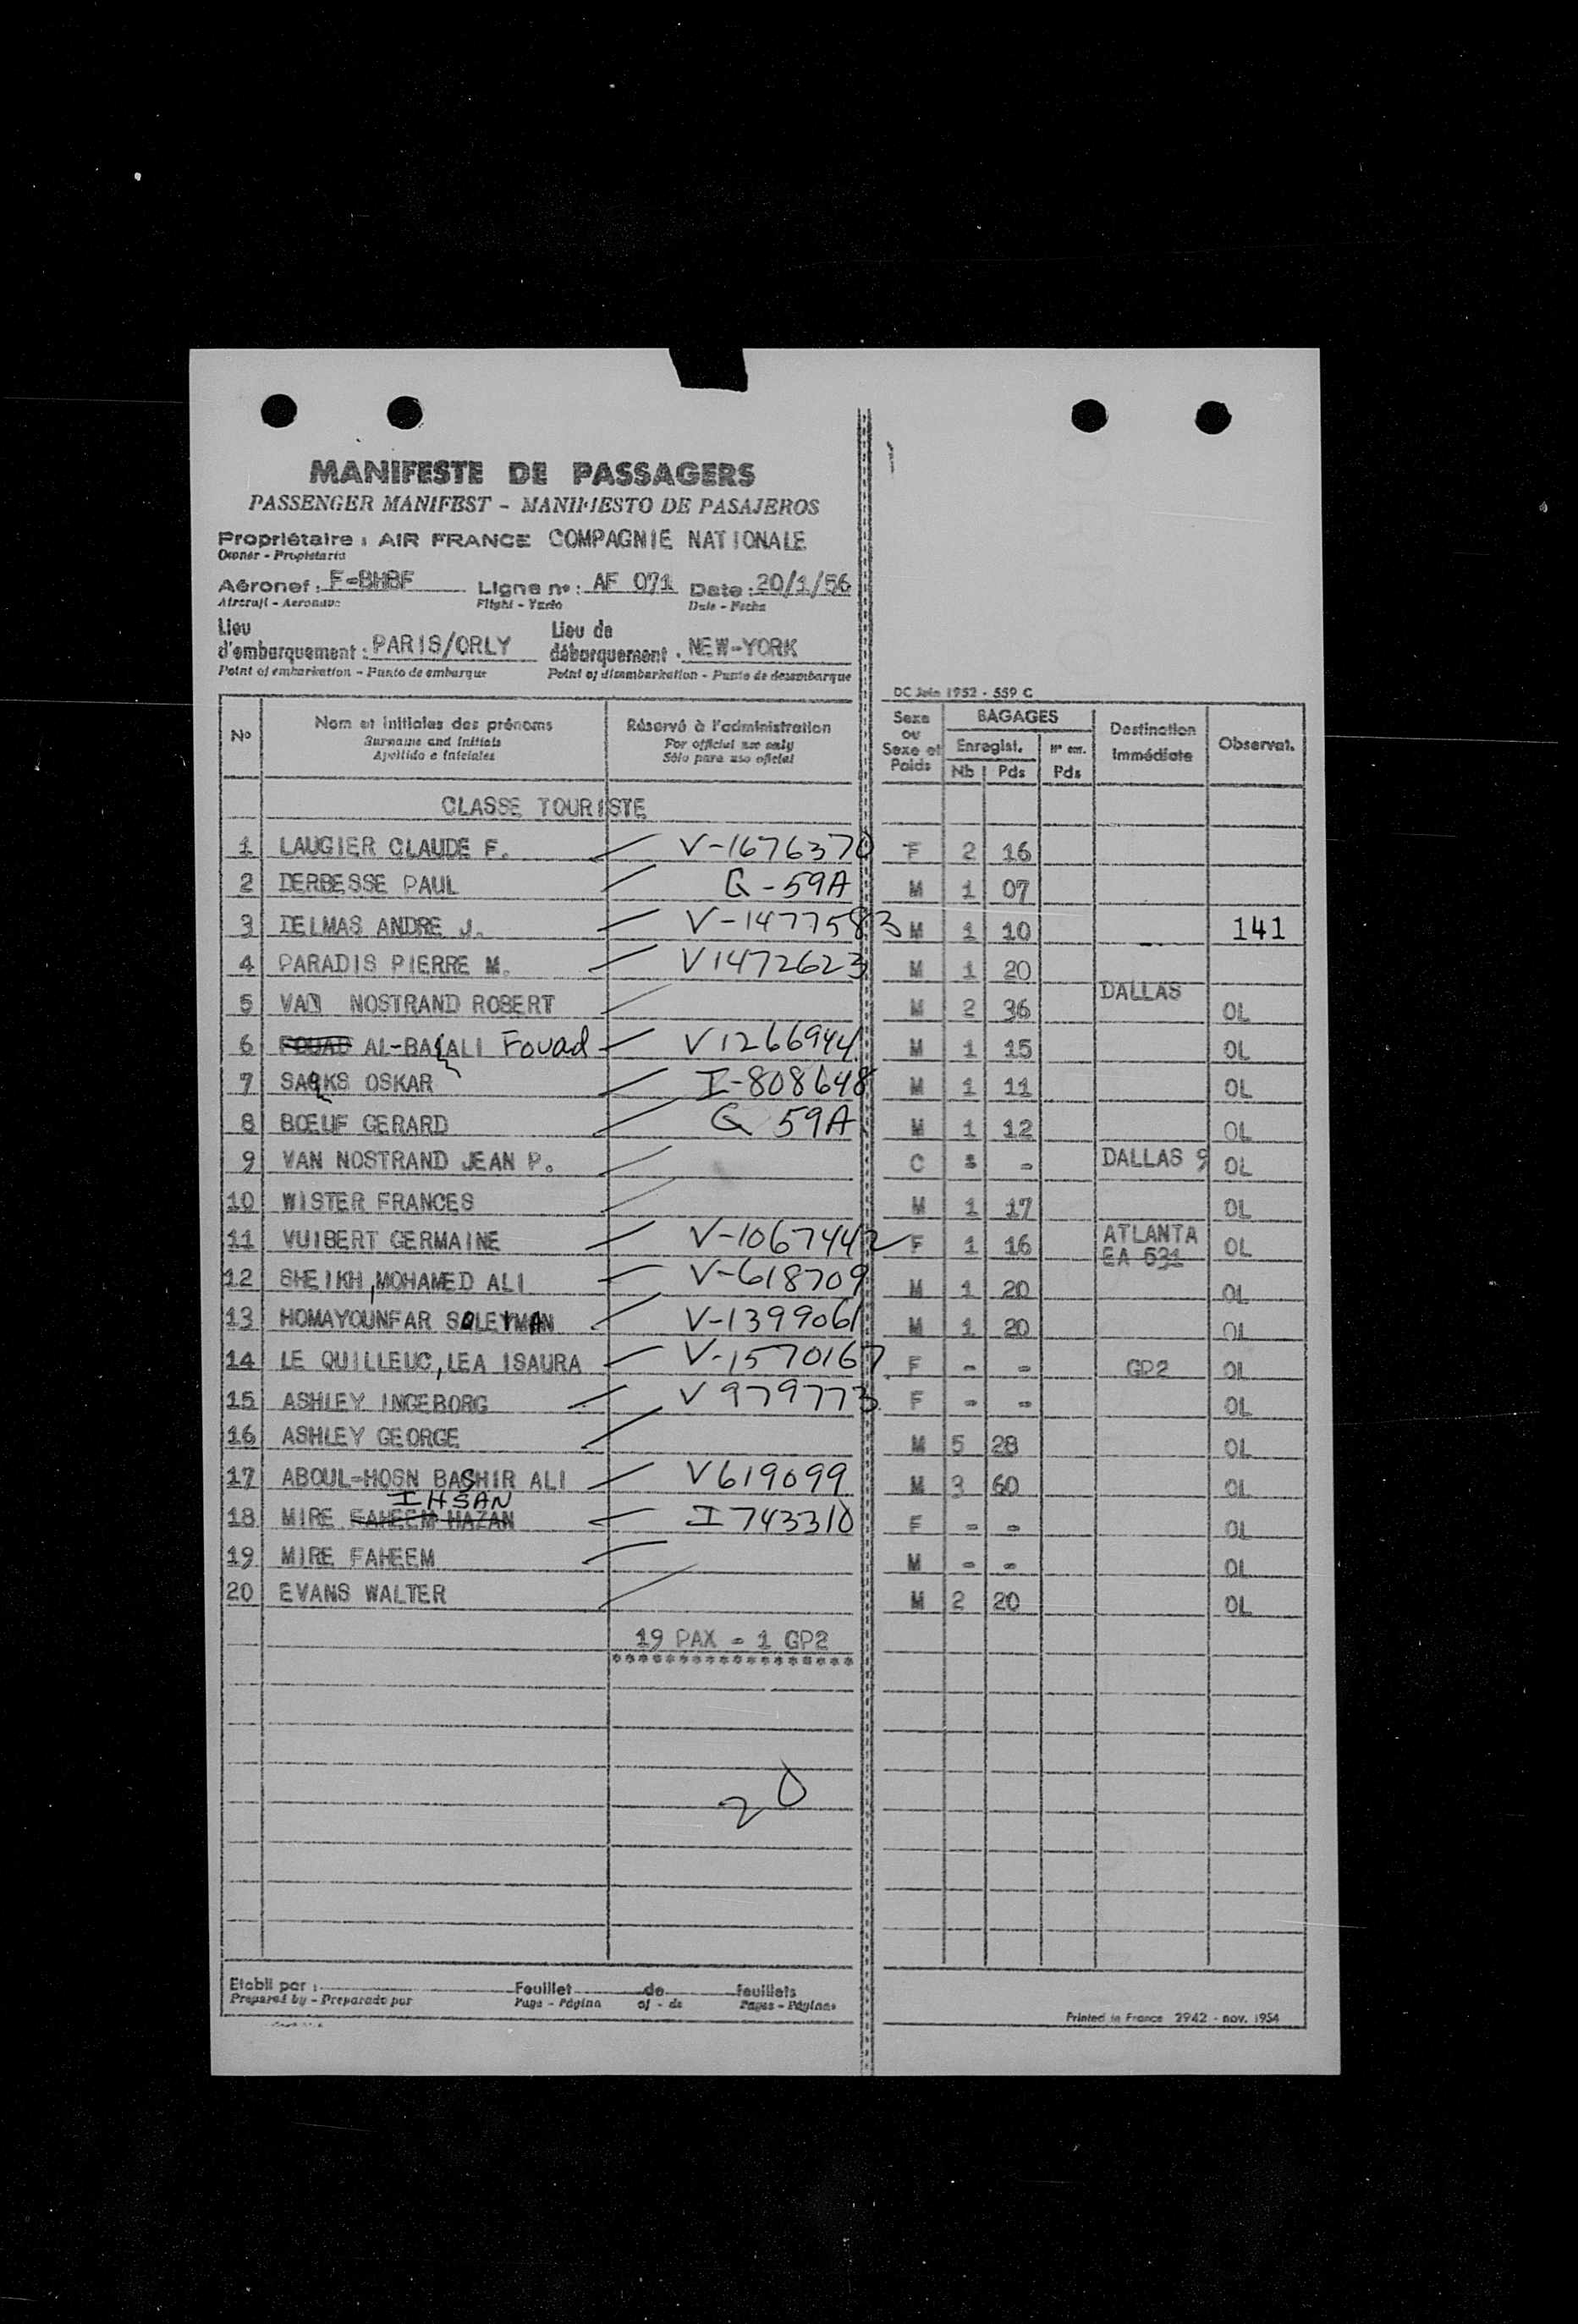 MANIFESTE DE PASSAGERS
PASSENGER MANIFEST - MANIFIESTO DE PASAJEROS
Propriétaire : AIR FRANCE COMPAGNIE NATIONALE
Owner - Propietario
Aéronef : F-BHBF Ligne n° : AF 071 Date : 20/1/56
Aircraft - Aeronave Flight - Vuelo Date - Fecha
Lieu d'embarquement : PARIS/ORLY Lieu de débarquement : NEW-YORK
Point of embarkation - Punto de embarque Point of disembarkation - Punto de desembarque
DC Juin 1952 - 559 C
N° Nom et initiales des prénoms Réservé à l'administration Sexe ou Sexe et Poids BAGAGES Destination immédiate Observat.
Surname and initials For official use only Enregist. N° en.
Apellido e iniciales Sólo para uso oficial Nb Pds Pds
CLASSE TOURISTE
1 LAUGIER CLAUDE F. V-1676370 F 2 16
2 DERBESSE PAUL G-59A M 1 07
3 DELMAS ANDRE J. V-1477583 M 1 10 141
4 PARADIS PIERRE M. V1472623 M 1 20
5 VAN NOSTRAND ROBERT M 2 36 DALLAS OL
6 FOUAD AL-BAALI Fouad V1266944 M 1 15 OL
7 SACKS OSKAR I-808648 M 1 11 OL
8 BŒUF GERARD G 59A M 1 12 OL
9 VAN NOSTRAND JEAN P. C - DALLAS 9 OL
10 WISTER FRANCES M 1 17 OL
11 VUIBERT GERMAINE V-1067442 F 1 16 ATLANTA EA 531 OL
12 SHEIKH, MOHAMED ALI V-618709 M 1 20 OL
13 HOMAYOUNFAR SOLEYMAN V-1399061 M 1 20 OL
14 LE QUILLEUC, LEA ISAURA V-1570167 F - - GP2 OL
15 ASHLEY INGEBORG V979773 F - - OL
16 ASHLEY GEORGE M 5 28 OL
17 ABOUL-HOSN BASHIR ALI V619099 M 3 60 OL
IHSAN
18 MIRE FAHEEM HAZAN I 743310 F - - OL
19 MIRE FAHEEM M - - OL
20 EVANS WALTER M 2 20 OL
19 PAX - 1 GP2
*****************
20
Etabli par : Feuillet de feuillets
Prepared by - Preparado por Page - Página of - de Pages - Páginas
Printed in France 2942 - nov. 1954